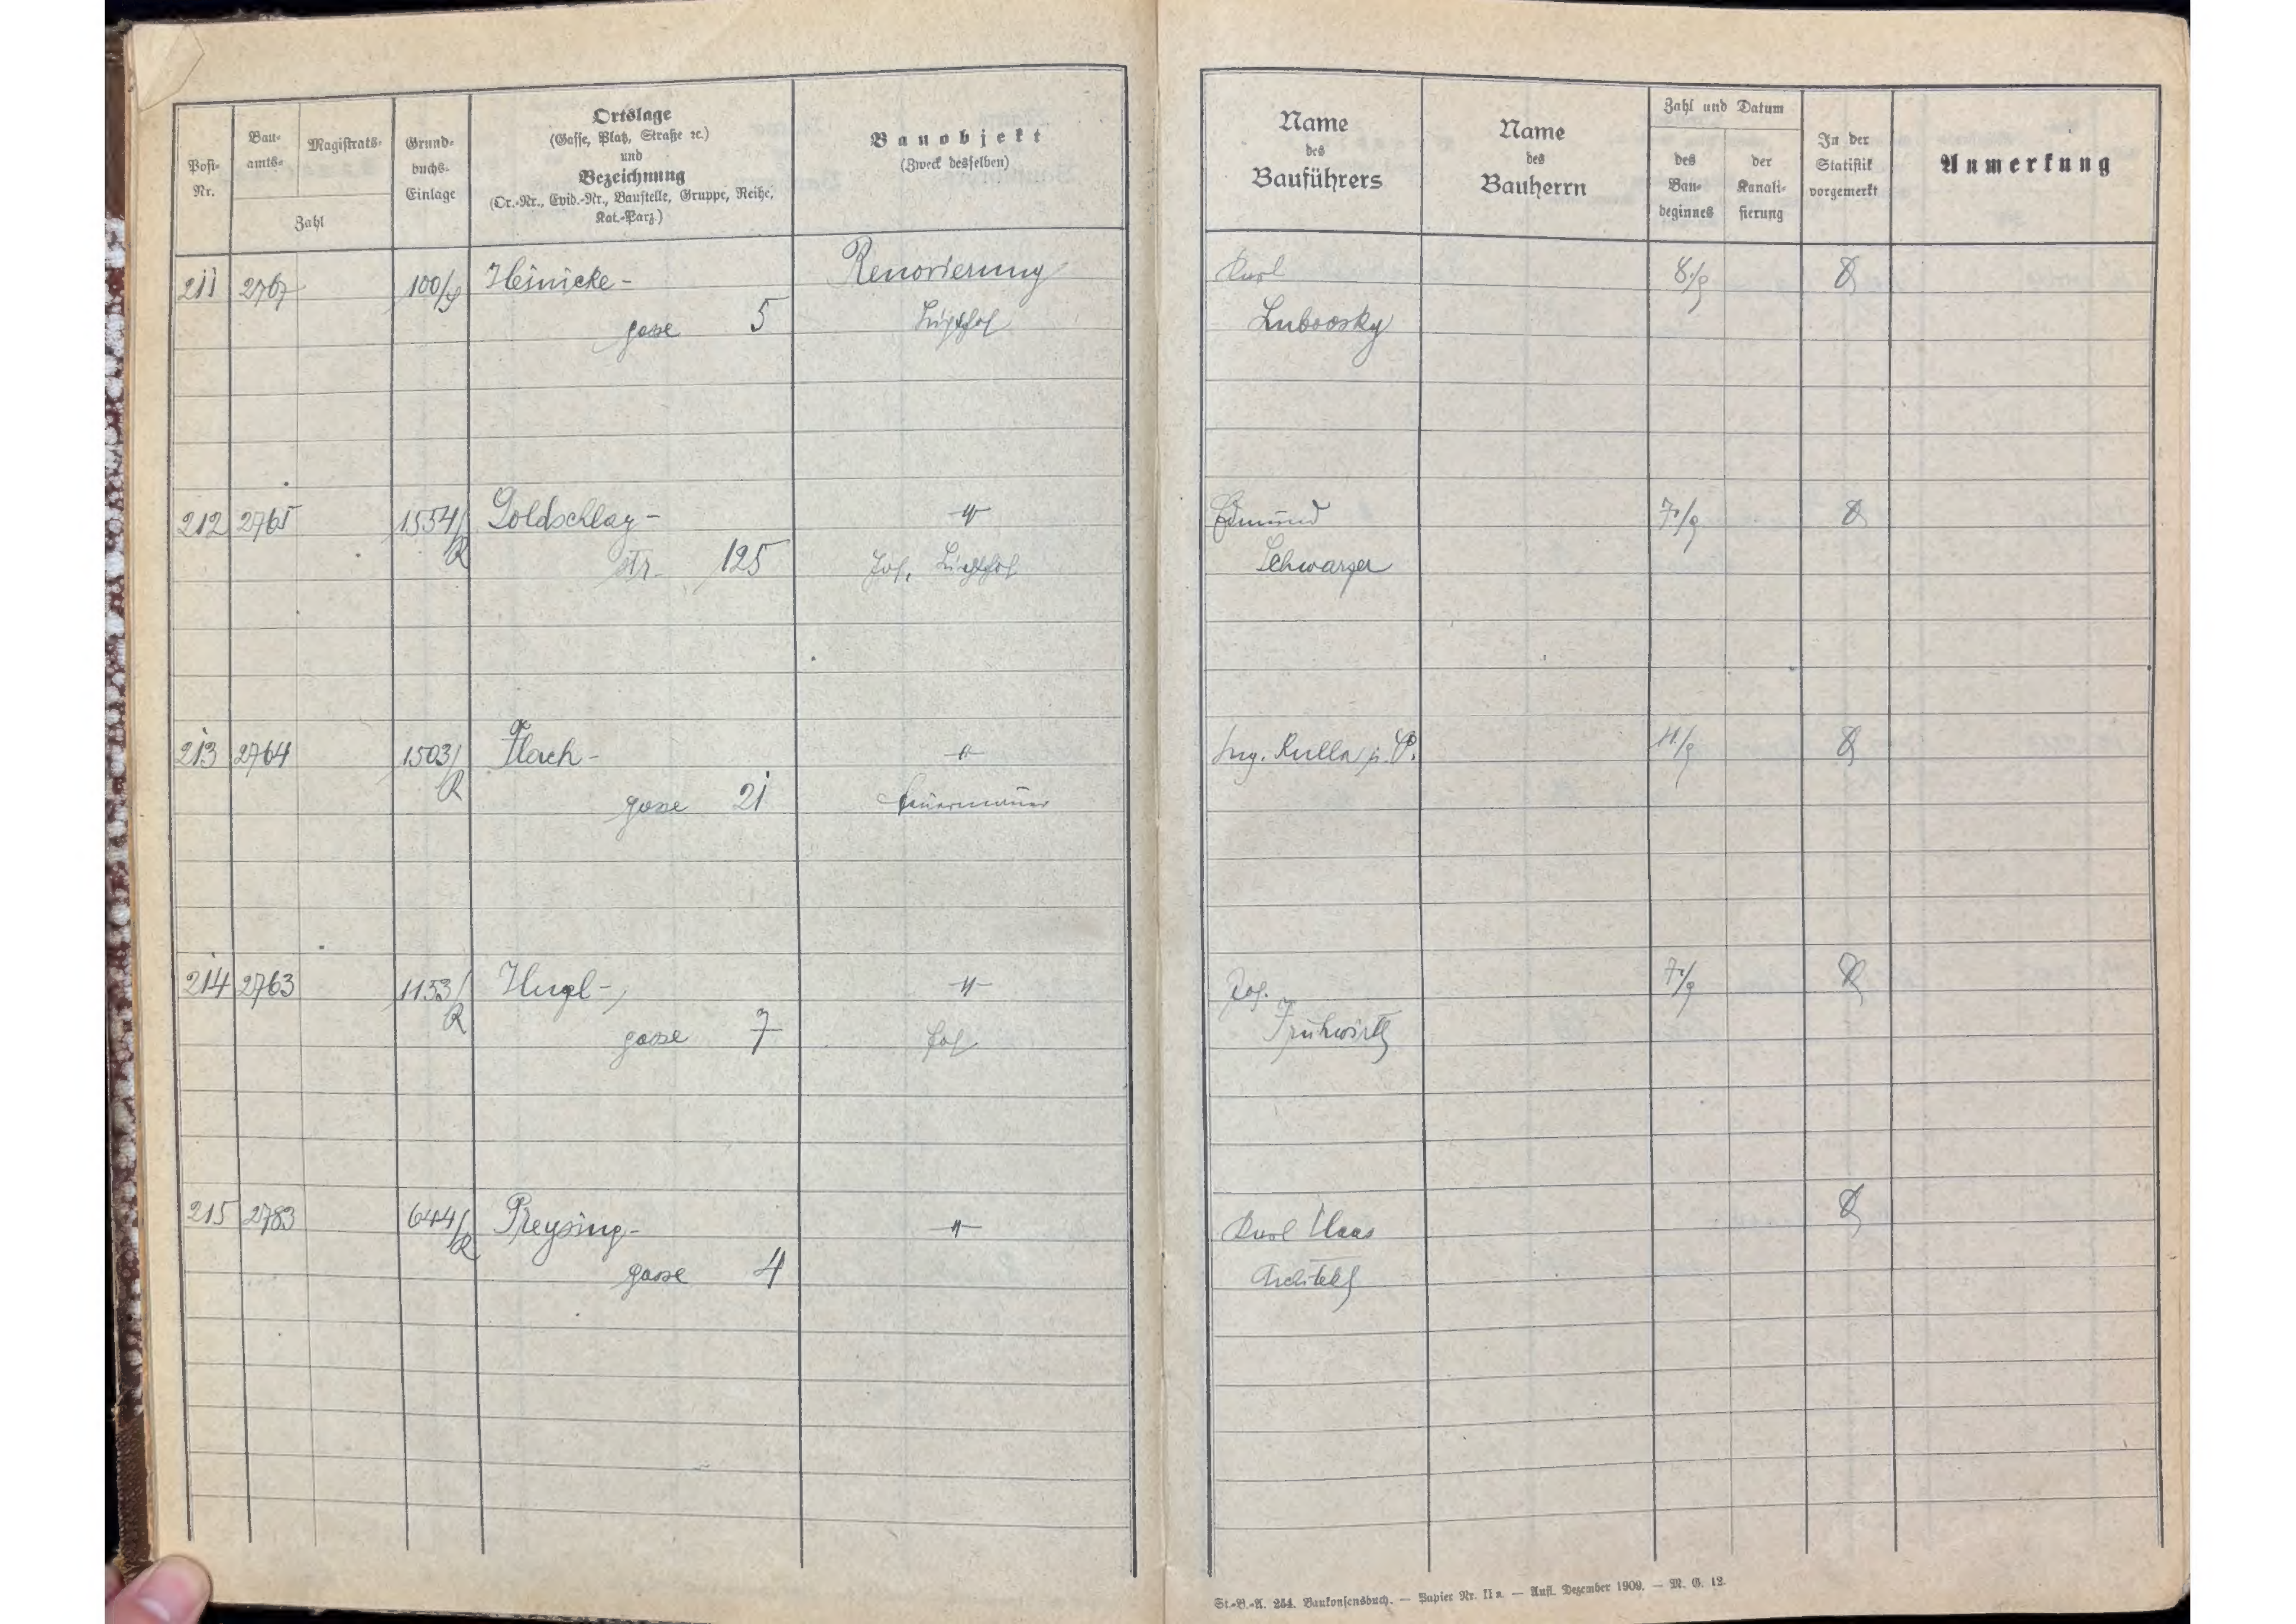 Posi-
Nr.
Bau-
amts-
Magistrats-
Zahl
Grund-
buchs-
Einlage
Ortslage
(Gasse, Platz, Straße ꝛc.)
und
Bezeichnung
(Or.-Nr., Evid.-Nr., Baustelle, Gruppe, Reihe,
Kat.-Parz.)
Bauobjekt
(Zweck desselben)
Name
des
Bauführers
Name
des
Bauherrn
Zahl und Datum
des
Bau-
beginnes
der
Kanali-
sierung
In der
Statistik
vorgemerkt
Anmerkung
211 2767 100/ Heinicke- Renovierung Karl 8./9
gasse 5 Lichthof Lubovsky
212 2765 1554/R Goldschlag- -"- Edmund 7./9
str. 125 Hof, Lichthof Schwarzer
213 2764 1503/R Flach- -"- Ing. Kulla 11/9
gasse 21 Feuermauer
214 2763 1153/R Hugl- -"- Jos. 7./9
gasse 7 Hof Frühwirth
215 2783 644/R Preysing- -"- Karl Haas
gasse 4 Architekt
St.-B.-A. 254. Baukonsensbuch. — Papier Nr. II a. — Aufl. Dezember 1909. — M. G. 12.